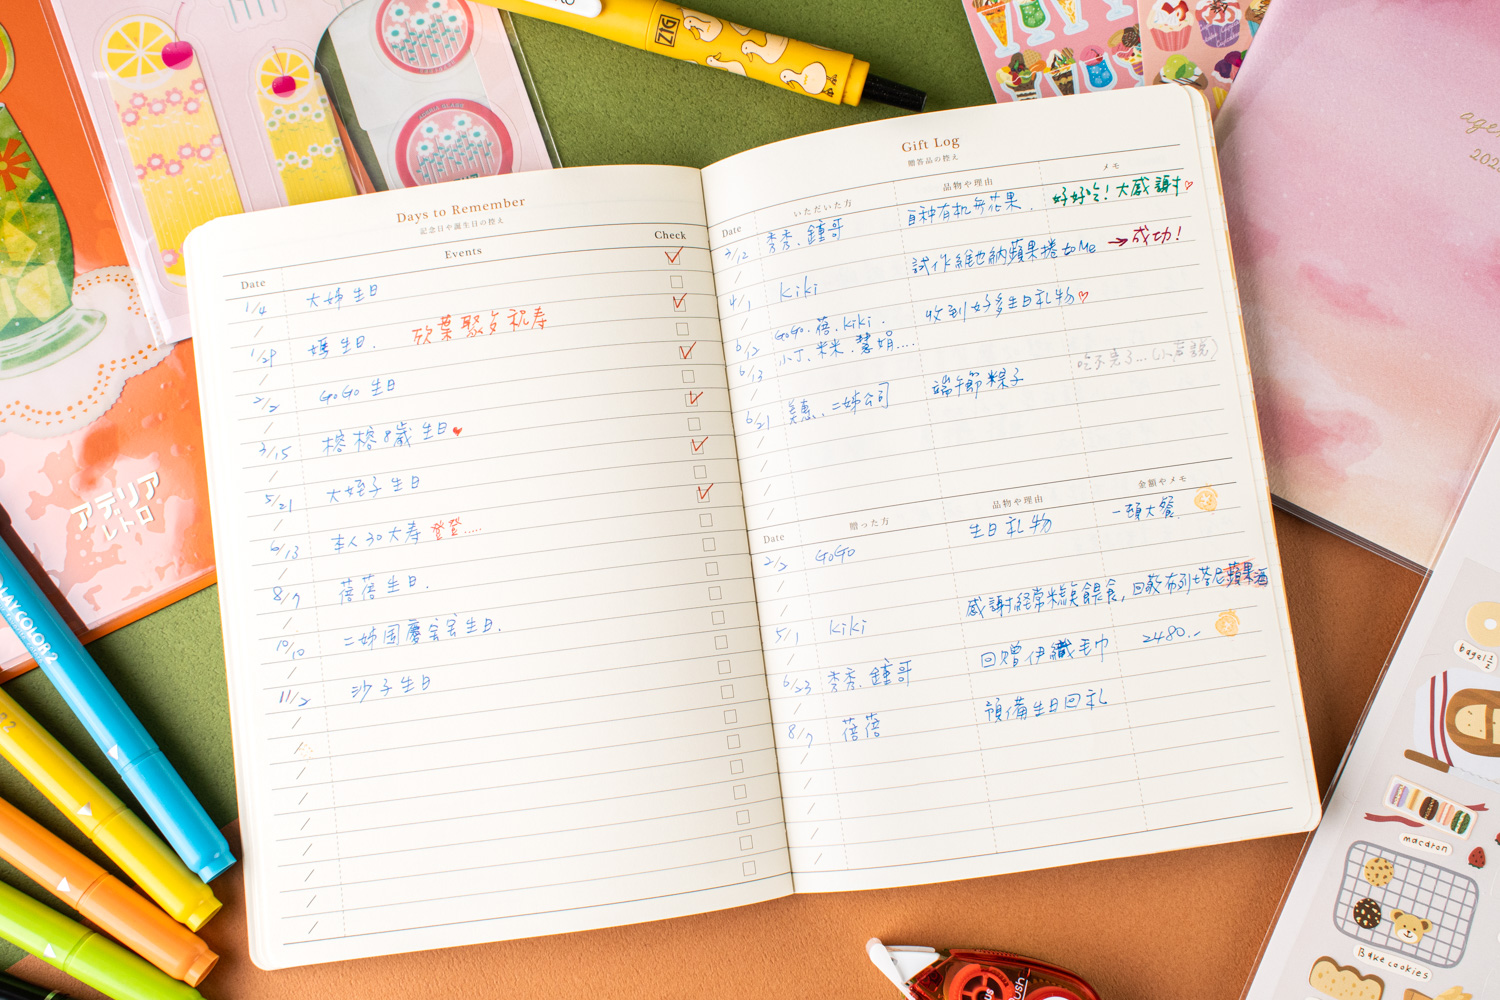 Days to Remember
記念日や誕生日の控え
Date Events Check
1/4 大姊生日
1/29 媽生日. 欣葉聚餐祝寿
2/2 GoGo 生日
3/15 榕榕8歲生日
5/21 大姪子生日
6/13 本人30大寿 登登.....
8/7 蓓蓓生日.
10/10 二姊国慶宝宝生日.
11/2 沙子生日
Gift Log
贈答品の控え
Date いただいた方 品物や理由 メモ
3/12 秀秀、鍾哥 自种有机无花果. 好好吃! 大感謝
4/1 kiki 試作維也納蘋果捲 to Me → 成功!
6/12 GoGo.蓓.kiki. 收到好多生日礼物
6/13 小丁.米米.慧娟....
6/21 美惠、二姊公司 端午節粽子 吃不完了...(小声說)
Date 贈った方 品物や理由 金額やメモ
2/2 GoGo 生日礼物 一頓大餐
5/1 kiki 感謝経常精美餽食,回敬布列塔尼蘋果酒
6/23 秀秀.鍾哥 回贈伊織毛巾 2480.-
8/7 蓓蓓 預備生日回礼
アデリア
レトロ
PLAY COLOR 2
ZIG
age
202
bagel
macaron
Bake cookies